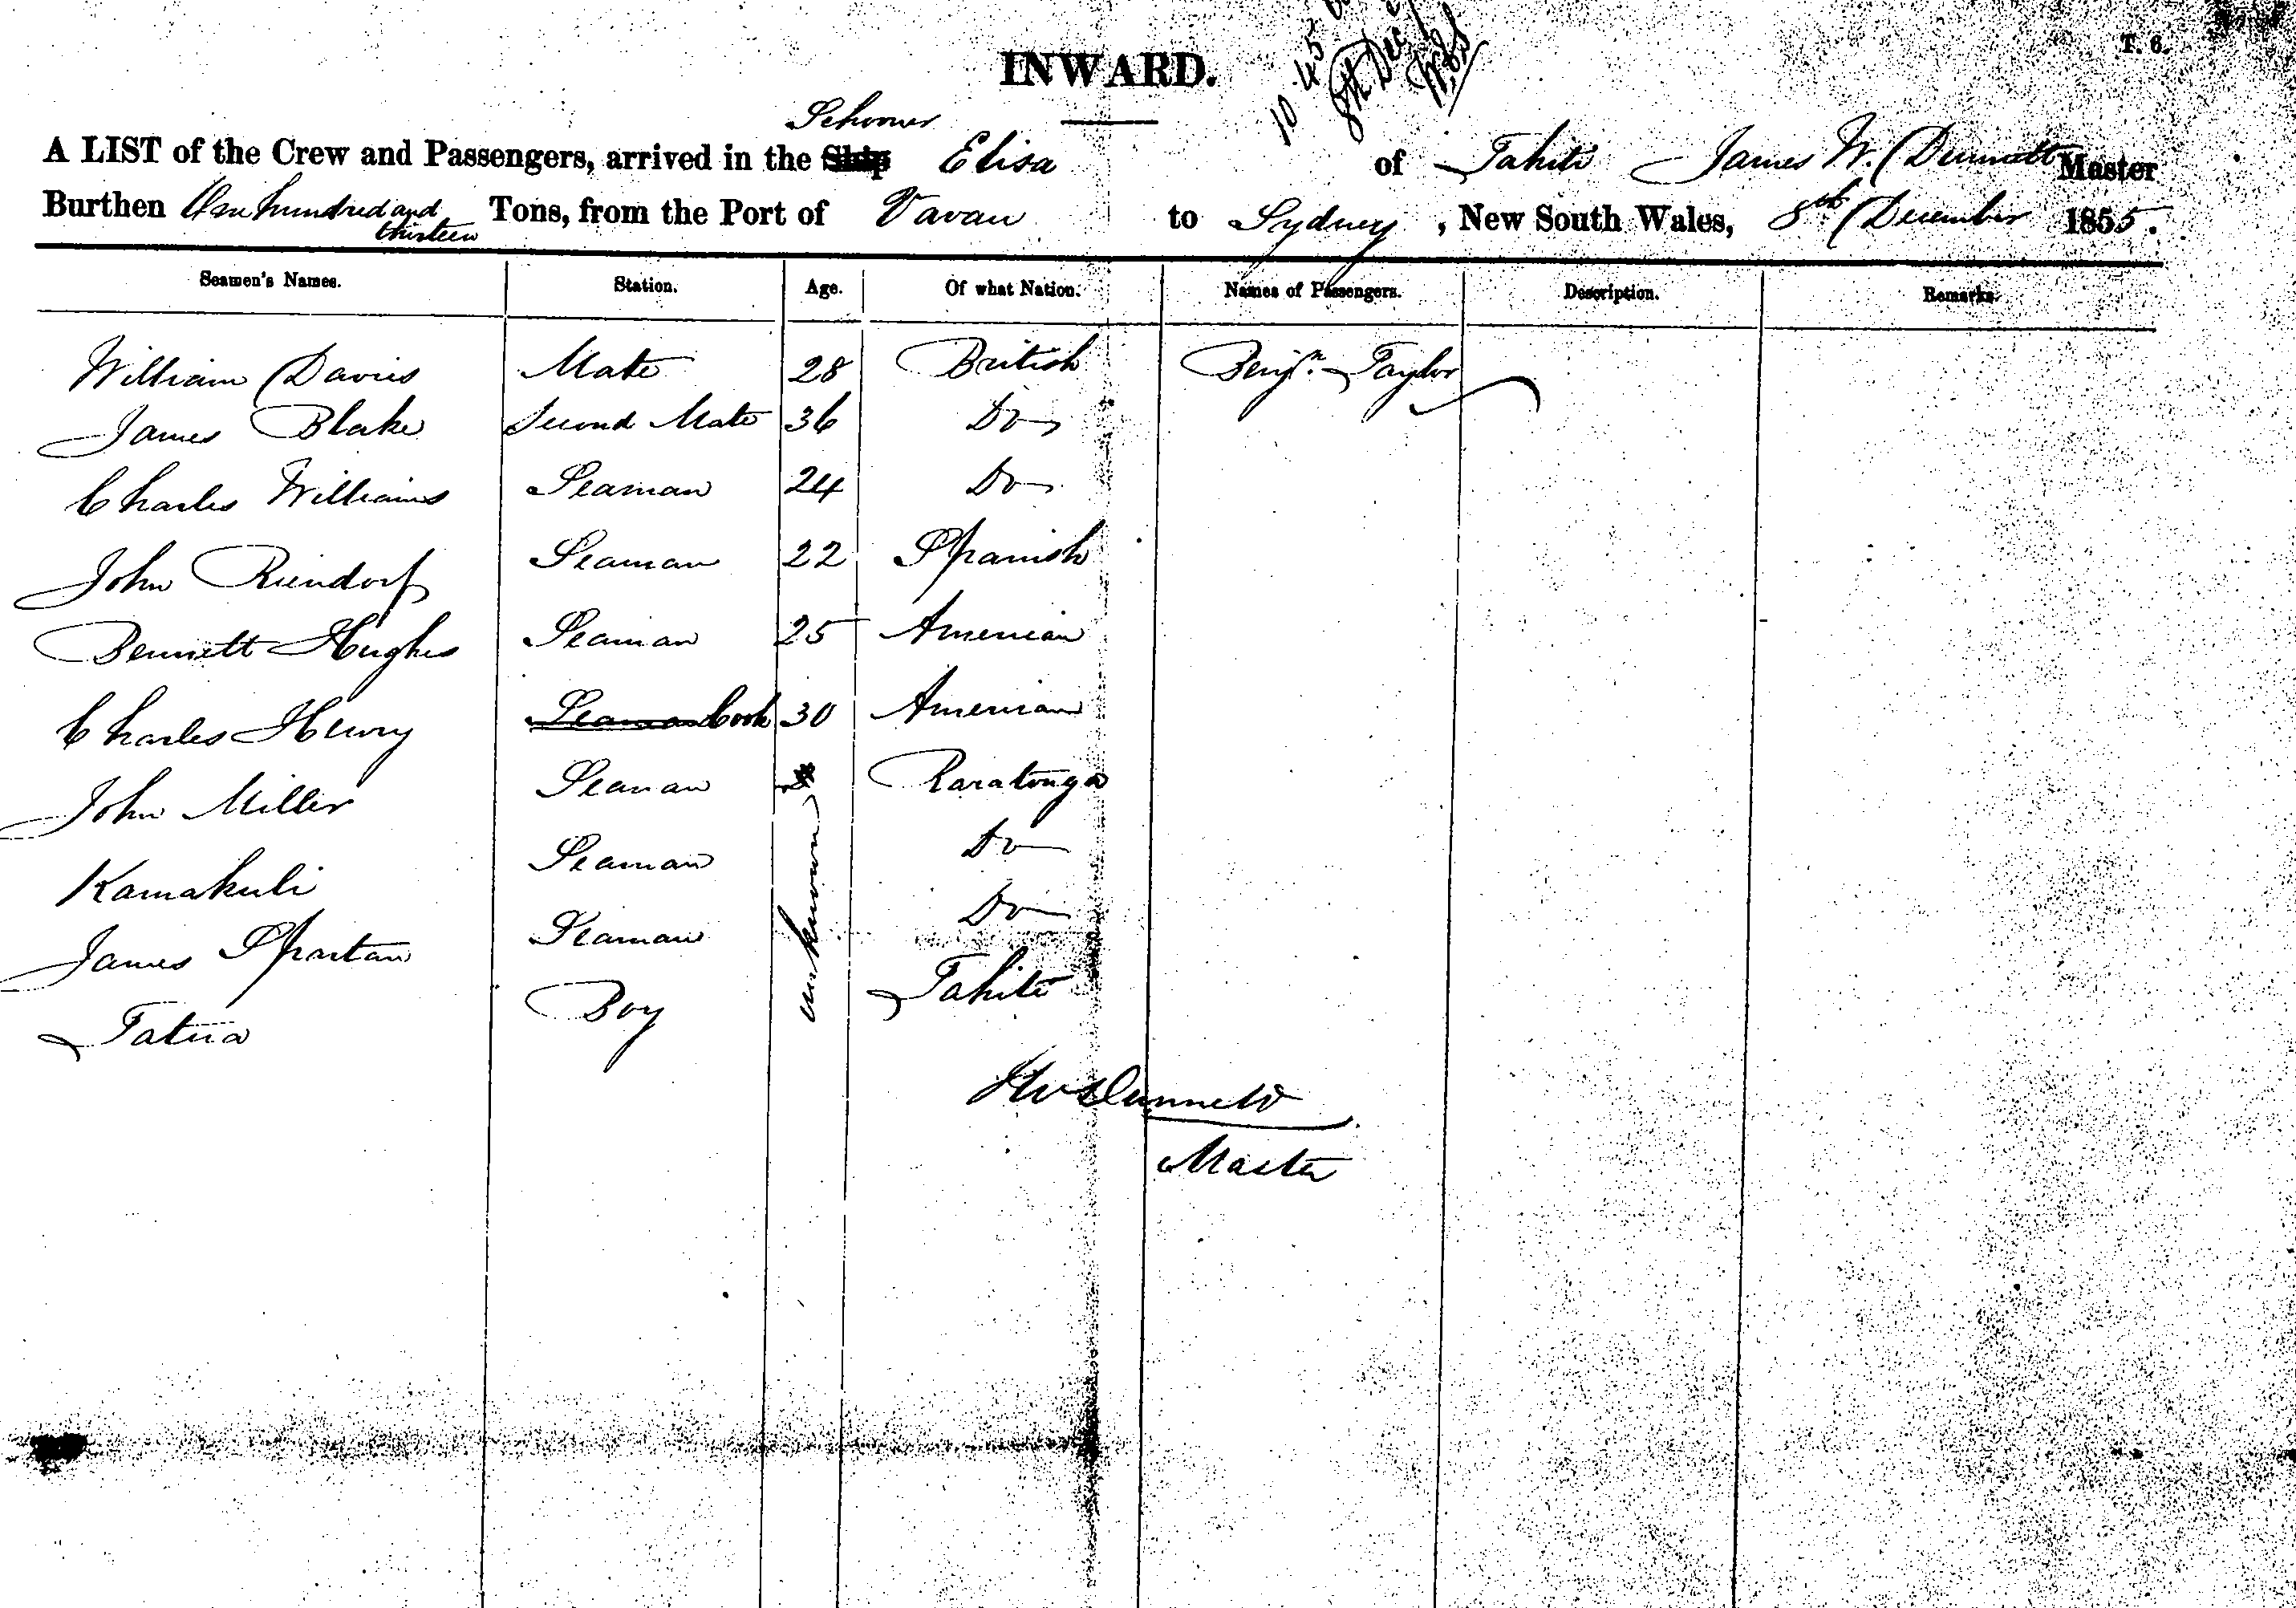 T. 6.
INWARD.
10 45
8th Dec
Schooner
A LIST of the Crew and Passengers, arrived in the Ship Elisa of Tahiti James W. Dunnett Master
Burthen One hundred and thirteen Tons, from the Port of Vavau to Sydney, New South Wales, 8th December 1855.
Seamen's Names. Station. Age. Of what Nation. Names of Passengers. Description. Remarks.
William Davies Mate 28 British Benjn. Taylor
James Blake Second Mate 36 Do
Charles Williams Seaman 24 Do
John Riendorf Seaman 22 Spanish
Bennett Hughes Seaman 25 American
Charles Henry Seaman Cook 30 American
John Miller Seaman unknown Raratonga
Kamakuli Seaman Do
James Spartan Seaman Do
Tatua Boy Tahiti
JW Dunnett
Master